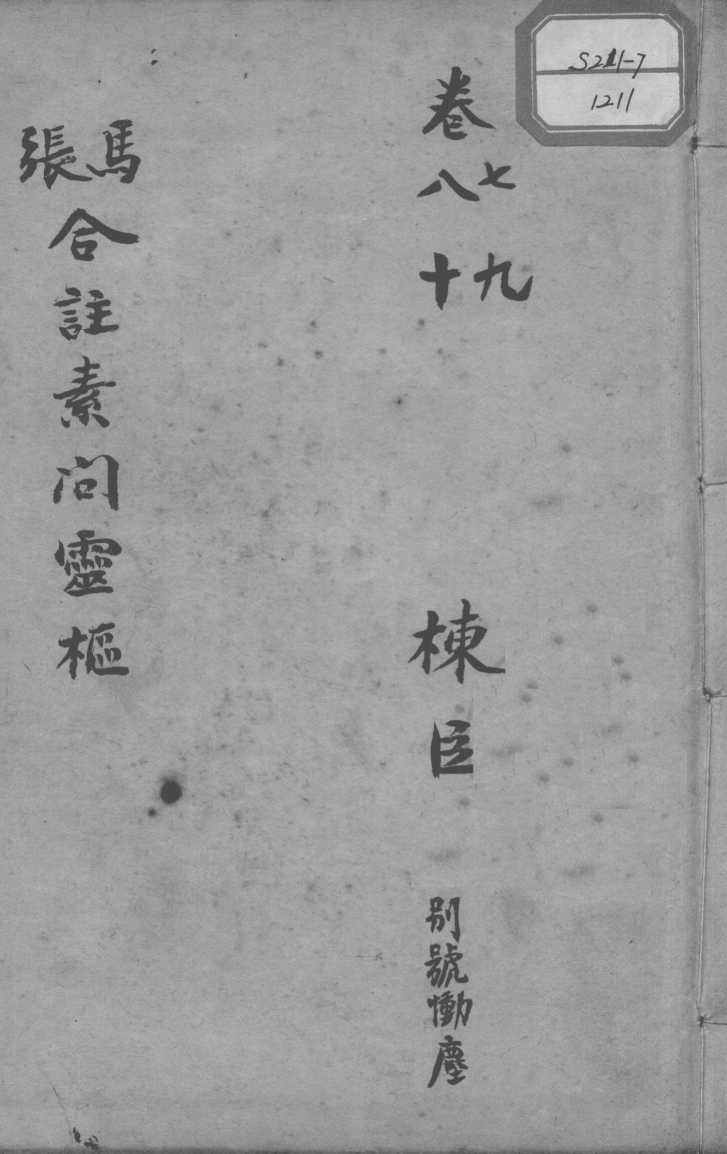 S211-7
1211
卷七八九十
棟臣 別號慟塵
馬張合註素問靈樞